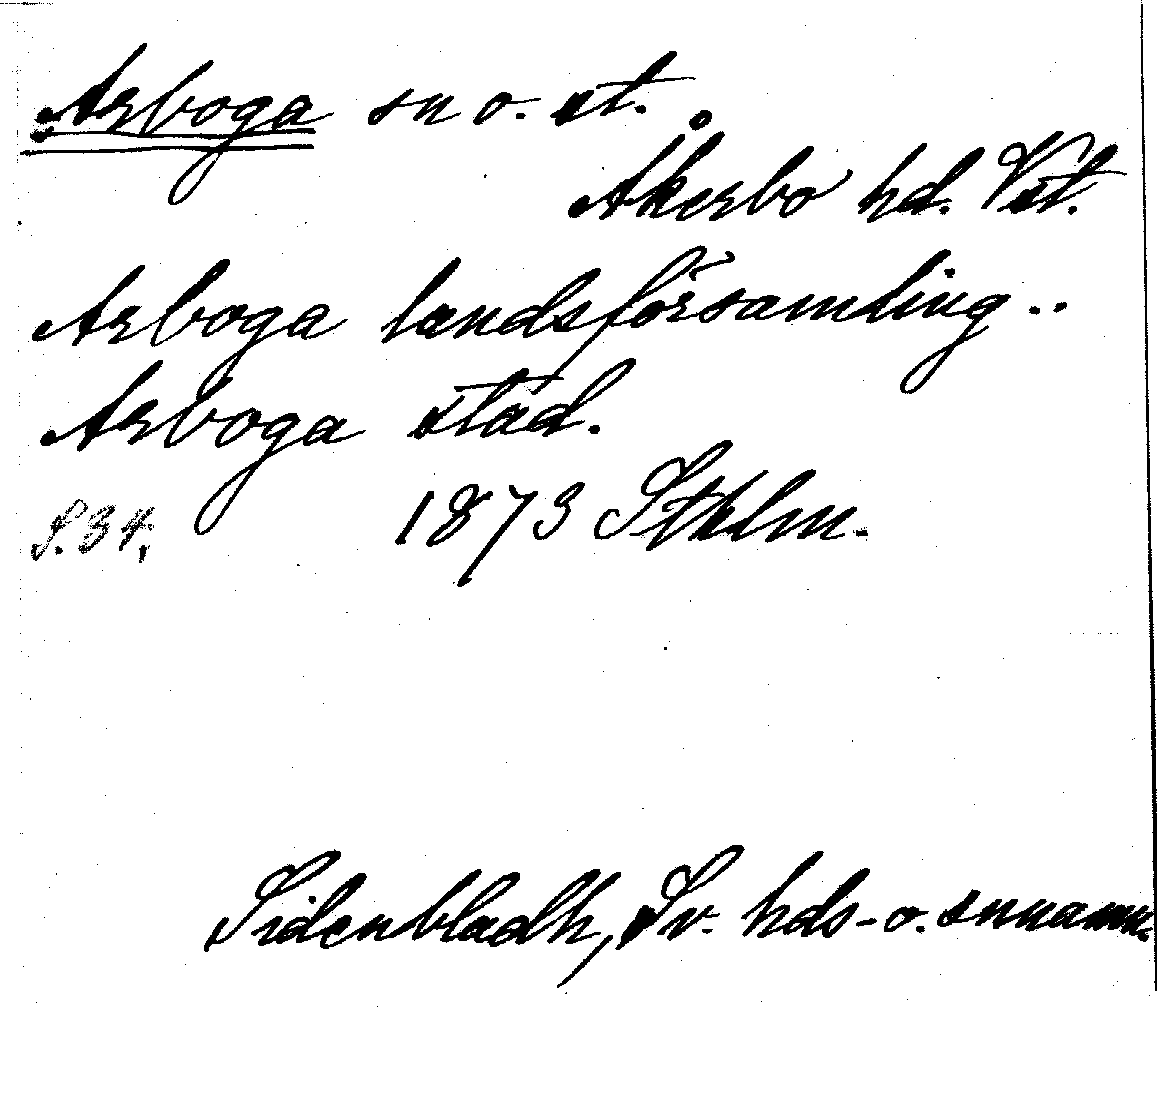 Arboga sn o. st.
Åkerbo hd. Vst.
Arboga landsförsamling..
Arboga stad.
S. 34. 1873 Sthlm.
Sidenbladh, Sv. hds- o. snnamn.